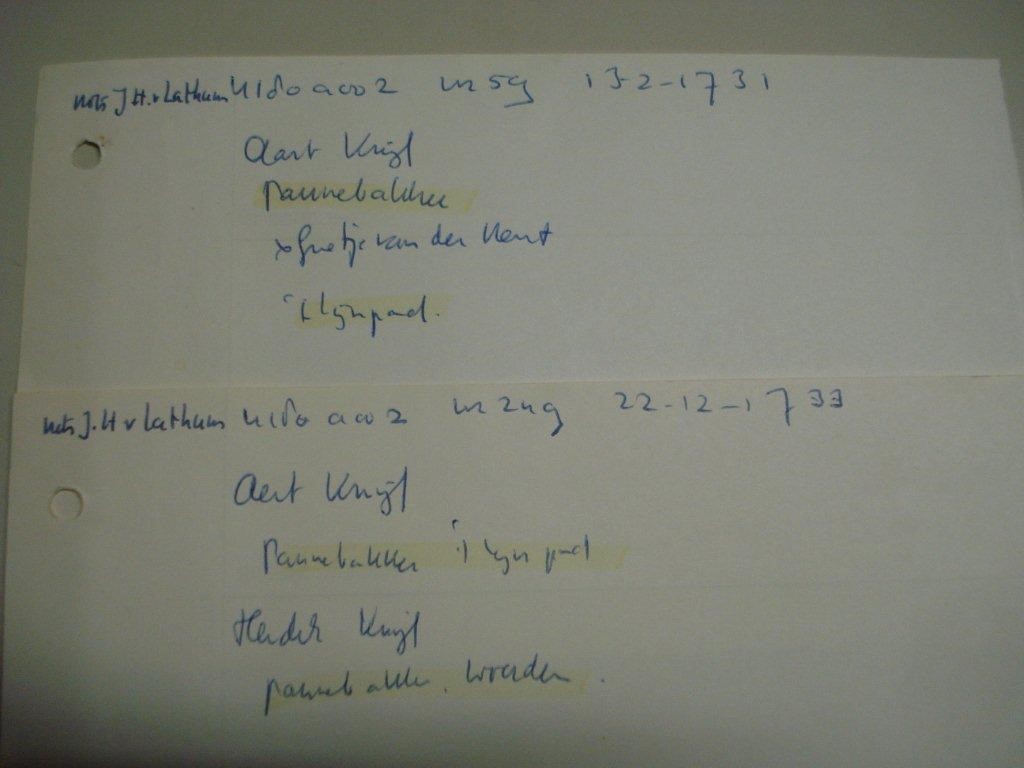 nots J.H. v Lathum U180 a002 nr 59 13-2-1731
Aart Knijf
pannebakker
x Grietje van der Kent
't Lijnpad.
nots J.H v Lathum U180 a002 nr 249 22-12-1733
Aert Knijf
Pannebakker 't Lijnpad
Hendrk Knijf
panneb akker. Woerden.